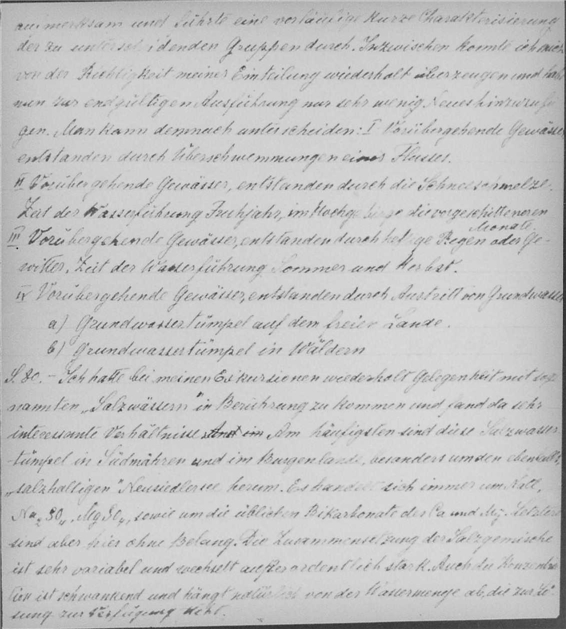 aufmerksam und führte eine vorläufige kurze Charakterisierung
der zu unterscheidenden Gruppen durch. Inzwischen konnte ich mich
von der Richtigkeit meiner Einteilung wiederholt überzeugen und habe
nun zur endgültigen Ausführung nur sehr wenig Neues hinzuzufü-
gen. Man kann demnach unterscheiden: I Vorübergehende Gewässer
entstanden durch Überschwemmungen eines Flusses.
II Vorübergehende Gewässer, entstanden durch die Schneeschmelze.
Zeit der Wasserführung Frühjahr, im Hochgebirge die vorgeschritteneren
Monate.
III Vorübergehende Gewässer, entstanden durch heftige Regen oder Ge-
witter. Zeit der Wasserführung Sommer und Herbst.
IV Vorübergehende Gewässer, entstanden durch Austritt von Grundwasser
a) Grundwassertümpel auf dem freien Lande.
b) Grundwassertümpel in Wäldern
S. 80. - Ich hatte bei meinen Exkursionen wiederholt Gelegenheit mit soge
nannten „Salzwässern" in Berührung zu kommen und fand da sehr
interessante Verhältnisse. Am häufigsten sind diese Salzwasser-
tümpel in Südmähren und im Burgenlande, besonders um den ebenfalls
„salzhaltigen" Neusiedlersee herum. Es handelt sich immer um NaCl,
Na₂SO₄, MgSO₄, sowie um die üblichen Bikarbonate der Ca und Mg. Letztere
sind aber hier ohne Belang. Die Zusammensetzung der Salzgemische
ist sehr variabel und wechselt außerordentlich stark. Auch die Konzentra
tion ist schwankend und hängt natürlich von der Wassermenge ab, die zur Lö-
sung zur Verfügung steht.